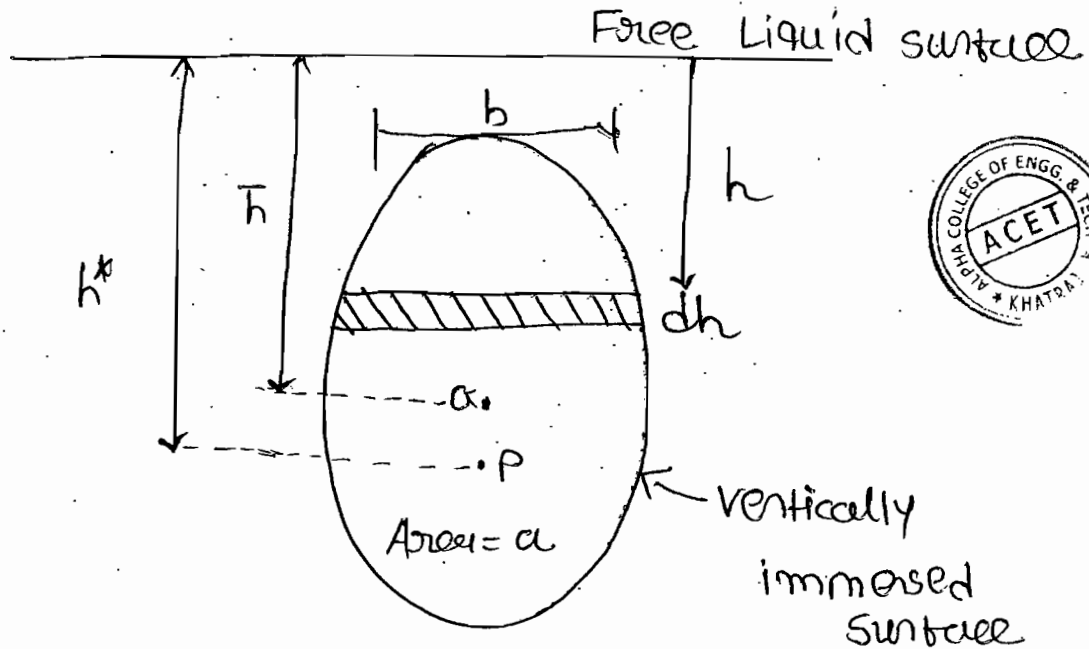 Free Liquid surface
b
h̄
h
h*
dh
G.
.P
Area = a
vertically
immersed
surface
ALPHA COLLEGE OF ENGG. &
ACET
KHATRAJ